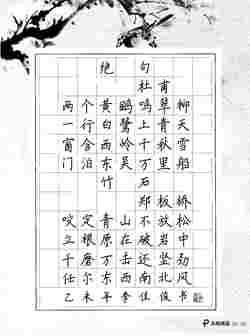 绝 句
杜甫
两个黄鹂鸣翠柳
一行白鹭上青天
窗含西岭千秋雪
门泊东吴万里船
竹 石
郑板桥
咬定青山不放松
立根原在破岩中
千磨万击还坚劲
任尔东西南北风
乙未年李佳俊书